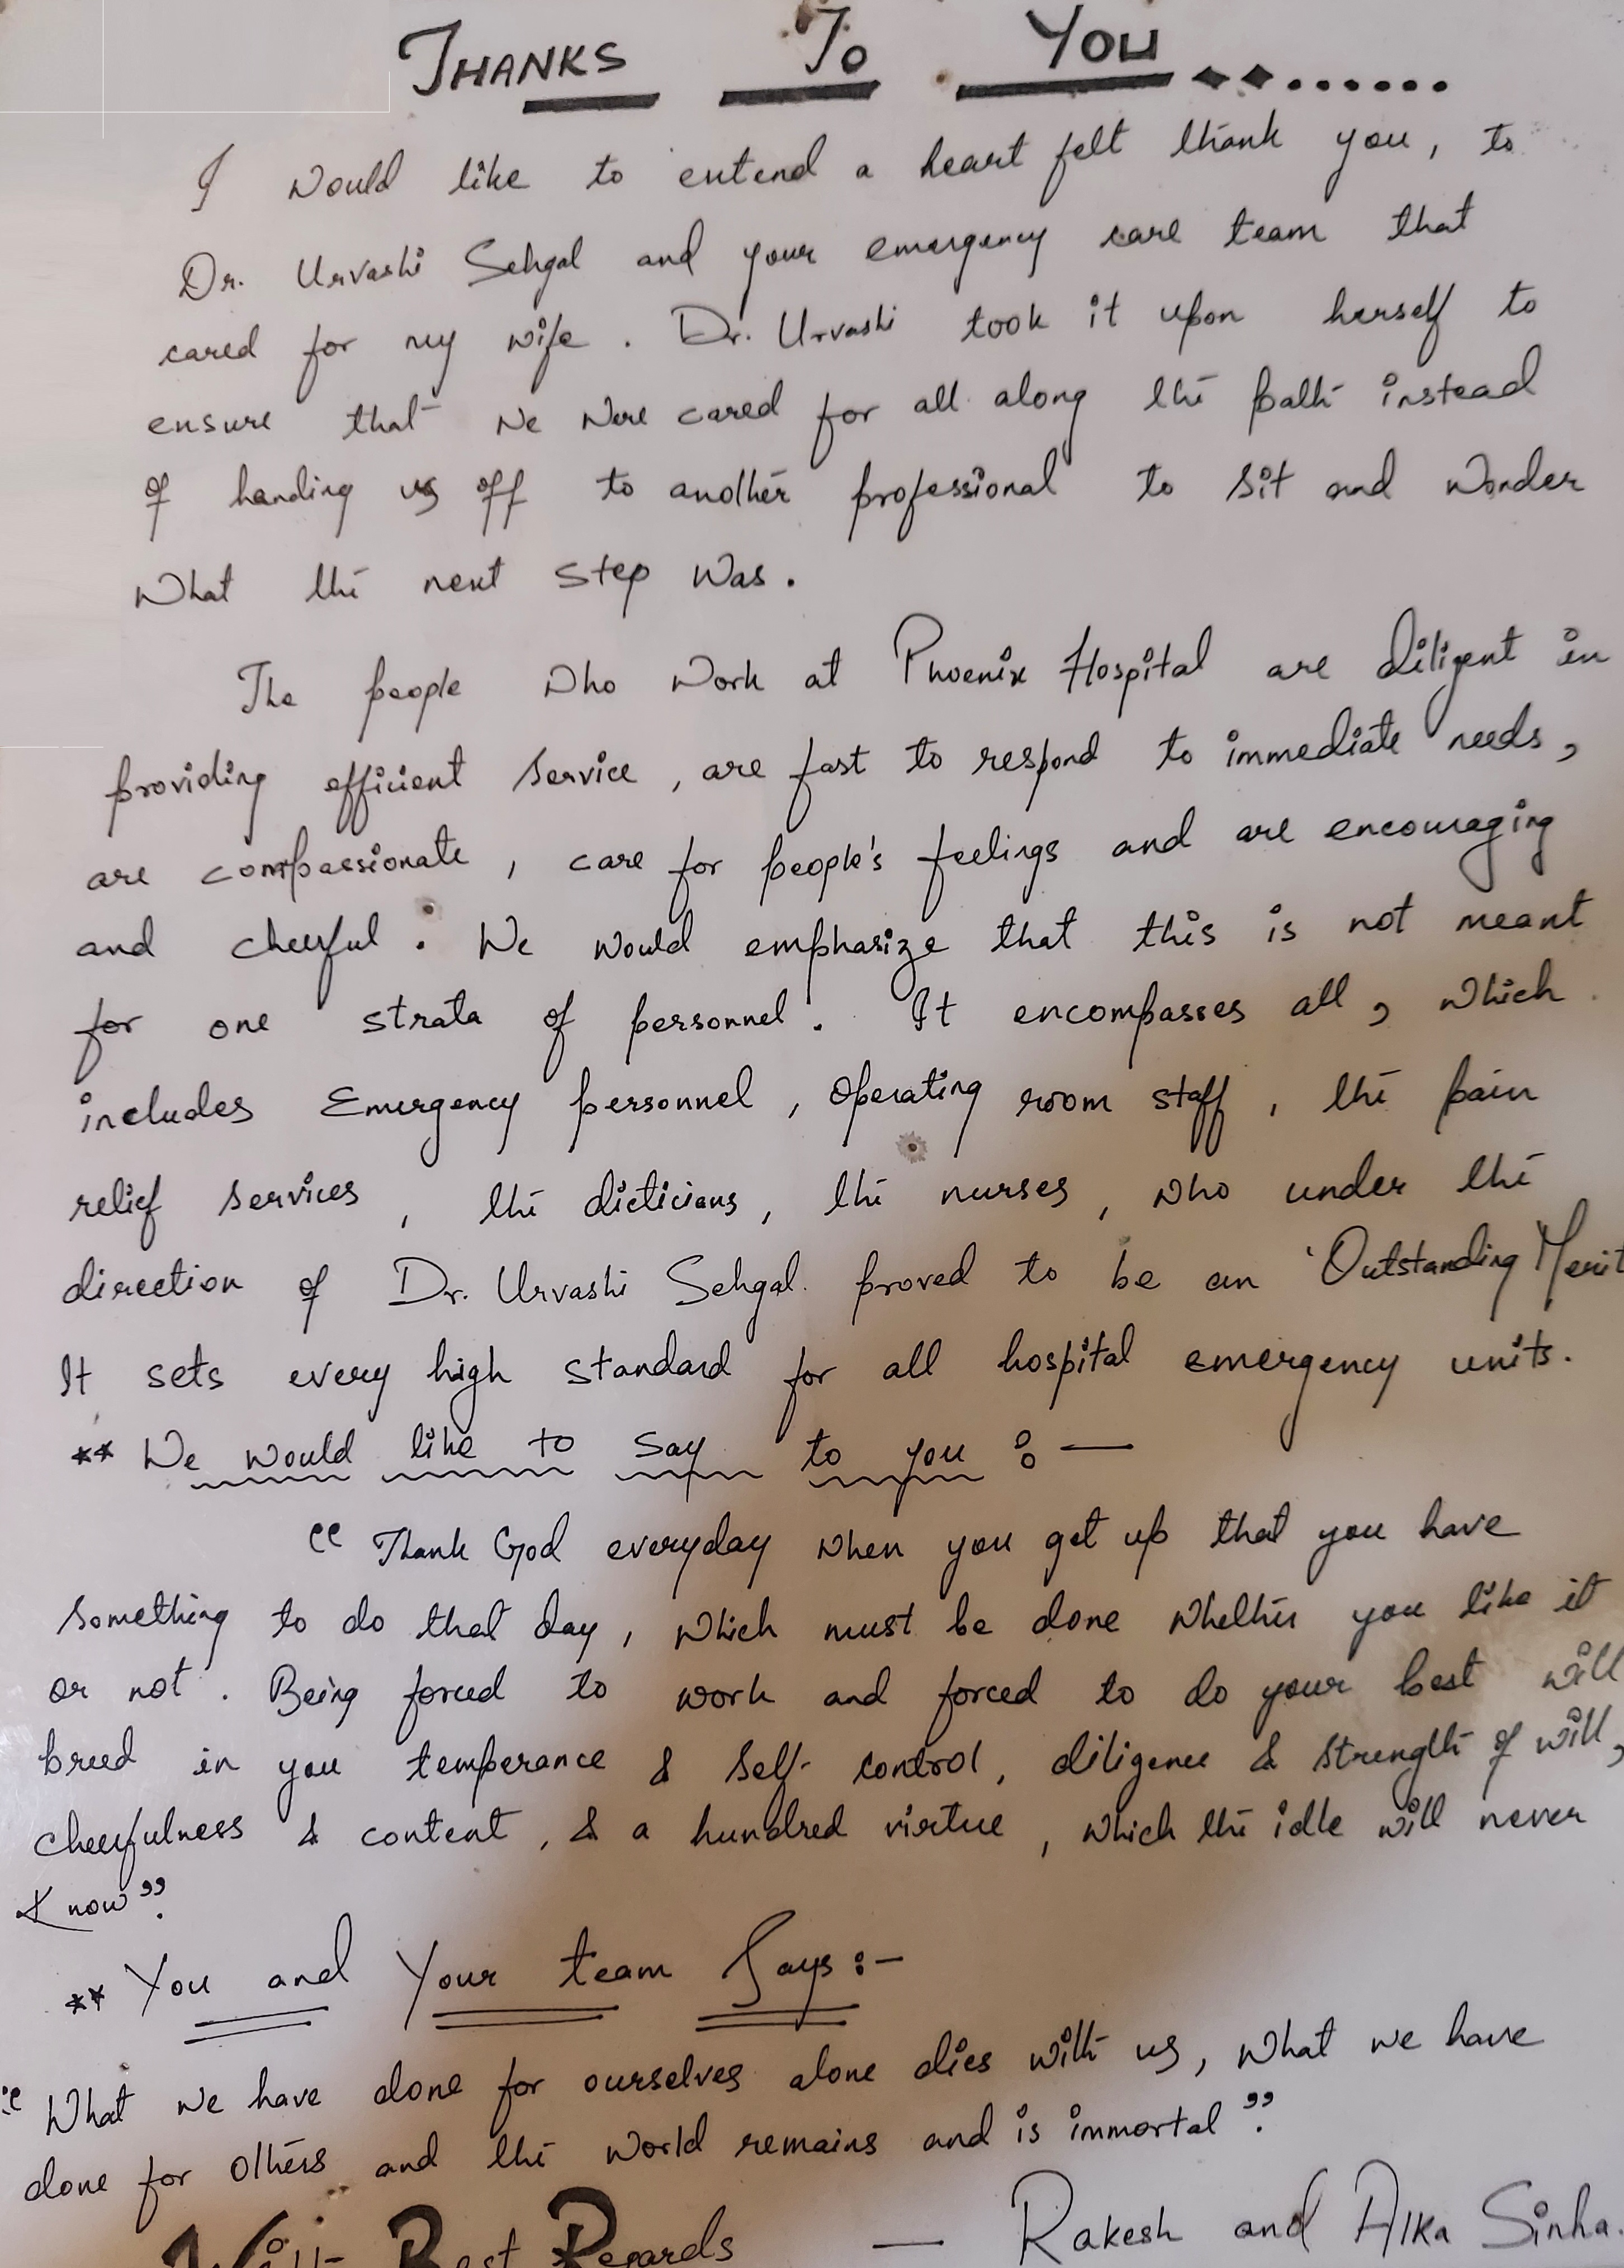 THANKS TO YOU ..........
I would like to extend a heart felt thank you, to
Dr. Urvashi Sehgal and your emergency care team that
cared for my wife. Dr. Urvashi took it upon herself to
ensure that we were cared for all along the path instead
of handing us off to another professional to sit and wonder
what the next step was.
The people who work at Phoenix Hospital are diligent in
providing efficient service, are fast to respond to immediate needs,
are compassionate, care for people's feelings and are encouraging
and cheerful. We would emphasize that this is not meant
for one strata of personnel. It encompasses all, which
includes Emergency personnel, operating room staff, the pain
relief services, the dieticians, the nurses, who under the
direction of Dr. Urvashi Sehgal proved to be an 'Outstanding Merit
It sets every high standard for all hospital emergency units.
** We would like to say to you :—
"Thank God everyday when you get up that you have
something to do that day, which must be done whether you like it
or not. Being forced to work and forced to do your best will
breed in you temperance & self-control, diligence & strength of will,
cheerfulness & content, & a hundred virtue, which the idle will never
know".
** You and Your team Says:-
"What we have done for ourselves alone dies with us, what we have
done for others and the world remains and is immortal".
With Best Regards — Rakesh and Alka Sinha.